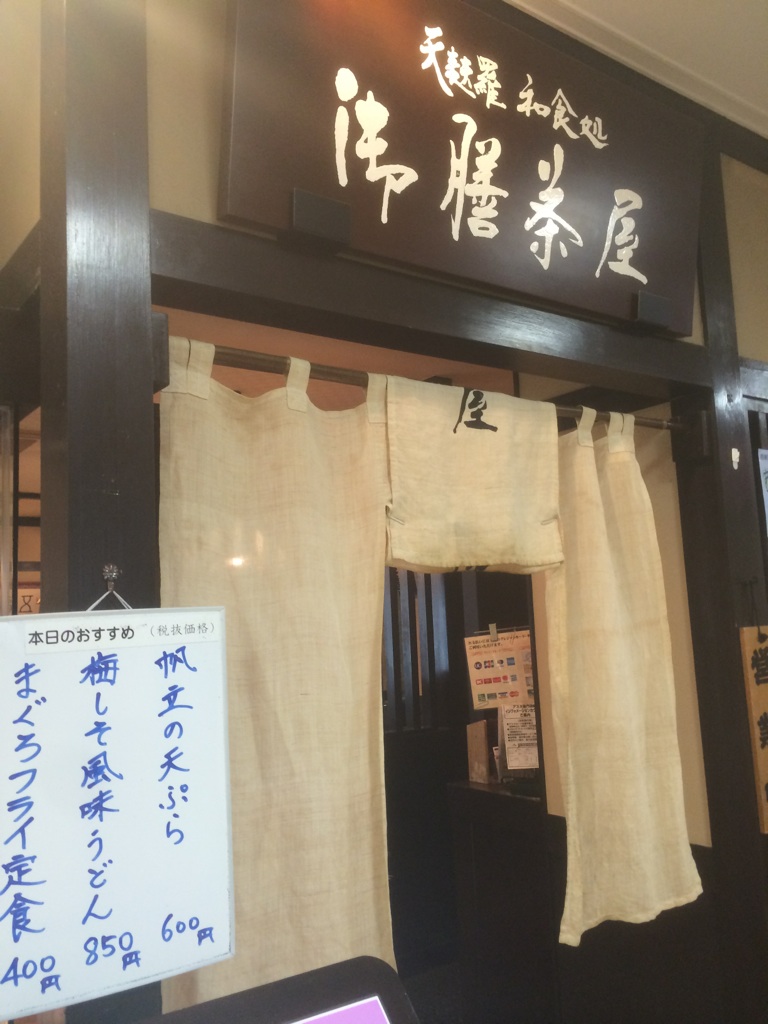 天麩羅 和食処
御膳茶屋
屋
本日のおすすめ (税抜価格)
帆立の天ぷら 600円
梅しそ風味うどん 850円
まぐろフライ定食 400円
営業中